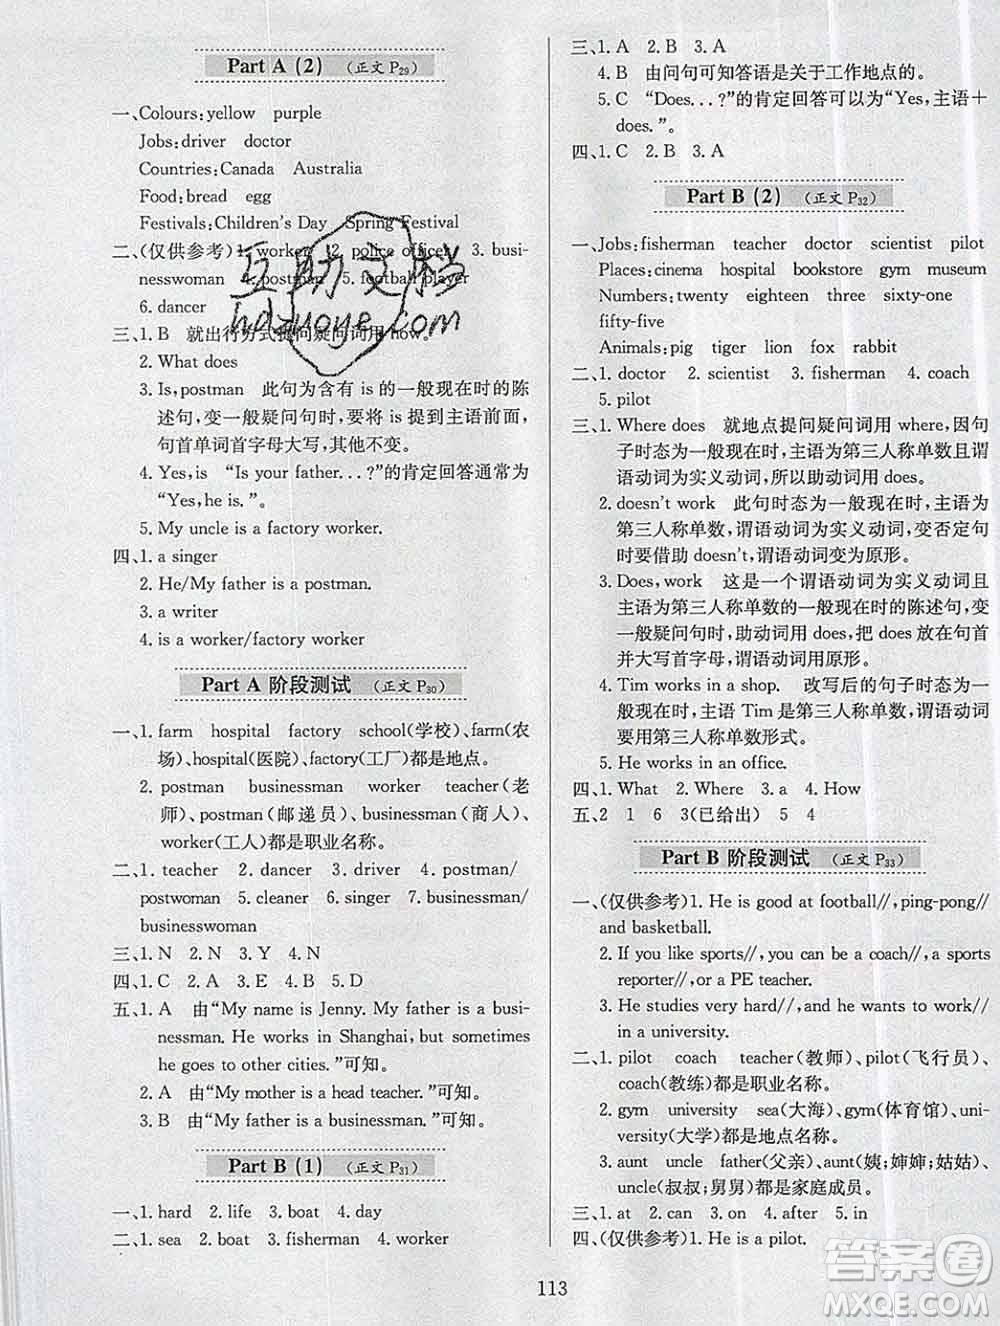 Part A (2) (正文 P29)
一、Colours:yellow purple
Jobs:driver doctor
Countries:Canada Australia
Food:bread egg
Festivals:Children's Day Spring Festival
二、(仅供参考)1. worker 2. police officer 3. busi-
nesswoman 4. postman 5. football player
6. dancer
三、1. B 就出行方式提问疑问词用 how。
2. What does
3. Is,postman 此句为含有 is 的一般现在时的陈
述句,变一般疑问句时,要将 is 提到主语前面,
句首单词首字母大写,其他不变。
4. Yes,is “Is your father. . . ?”的肯定回答通常为
“Yes,he is.”。
5. My uncle is a factory worker.
四、1. a singer
2. He/My father is a postman.
3. a writer
4. is a worker/factory worker
Part A 阶段测试 (正文 P30)
一、1. farm hospital factory school(学校)、farm(农
场)、hospital(医院)、factory(工厂)都是地点。
2. postman businessman worker teacher(老
师)、postman(邮递员)、businessman(商人)、
worker(工人)都是职业名称。
二、1. teacher 2. dancer 3. driver 4. postman/
postwoman 5. cleaner 6. singer 7. businessman/
businesswoman
三、1. N 2. N 3. Y 4. N
四、1. C 2. A 3. E 4. B 5. D
五、1. A 由“My name is Jenny. My father is a busi-
nessman. He works in Shanghai, but sometimes
he goes to other cities.”可知。
2. A 由“My mother is a head teacher.”可知。
3. B 由“My father is a businessman.”可知。
Part B (1) (正文 P31)
一、1. hard 2. life 3. boat 4. day
二、1. sea 2. boat 3. fisherman 4. worker
三、1. A 2. B 3. A
4. B 由问句可知答语是关于工作地点的。
5. C “Does. . . ?”的肯定回答可以为“Yes,主语+
does.”。
四、1. C 2. B 3. A
Part B (2) (正文 P32)
一、Jobs:fisherman teacher doctor scientist pilot
Places:cinema hospital bookstore gym museum
Numbers:twenty eighteen three sixty-one
fifty-five
Animals:pig tiger lion fox rabbit
二、1. doctor 2. scientist 3. fisherman 4. coach
5. pilot
三、1. Where does 就地点提问疑问词用 where,因句
子时态为一般现在时,主语为第三人称单数且谓
语动词为实义动词,所以助动词用 does。
2. doesn't work 此句时态为一般现在时,主语为
第三人称单数,谓语动词为实义动词,变否定句
时要借助 doesn't,谓语动词变为原形。
3. Does,work 这是一个谓语动词为实义动词且
主语为第三人称单数的一般现在时的陈述句,变
一般疑问句时,助动词用 does,把 does 放在句首
并大写首字母,谓语动词用原形。
4. Tim works in a shop. 改写后的句子时态为一
般现在时,主语 Tim 是第三人称单数,谓语动词
要用第三人称单数形式。
5. He works in an office.
四、1. What 2. Where 3. a 4. How
五、2 1 6 3(已给出) 5 4
Part B 阶段测试 (正文 P33)
一、(仅供参考)1. He is good at football//,ping-pong//
and basketball.
2. If you like sports//,you can be a coach//,a sports
reporter//,or a PE teacher.
3. He studies very hard//,and he wants to work//
in a university.
二、1. pilot coach teacher(教师)、pilot(飞行员)、
coach(教练)都是职业名称。
2. gym university sea(大海)、gym(体育馆)、uni-
versity(大学)都是地点名称。
3. aunt uncle father(父亲)、aunt(姨;婶婶;姑姑)、
uncle(叔叔;舅舅)都是家庭成员。
三、1. at 2. can 3. on 4. after 5. in
四、(仅供参考)1. He is a pilot.
113
互助文档
hdzuoye.com
答案圈
MXQE.COM